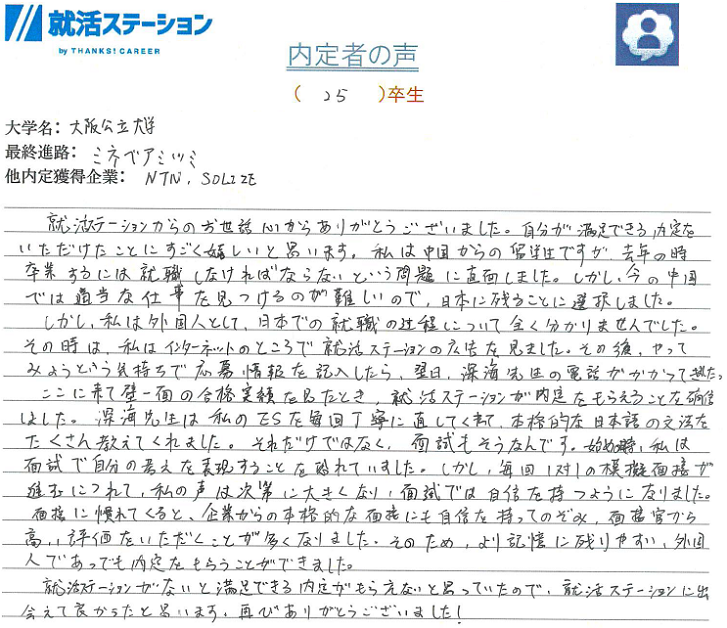 就活ステーション
by THANKS! CAREER
内定者の声
( 25 )卒生
大学名: 大阪公立大学
最終進路: ミネベアミツミ
他内定獲得企業: NTN, SOLIZE
就活ステーションからのお世話 心からありがとうございました。自分が満足できる内定を
いただけたことにすごく嬉しいと思います。私は中国からの留学生ですが、去年の時
卒業するには就職しなければならないという問題に直面しました。しかし、今の中国
では適当な仕事を見つけるのが難しいので、日本に残ることに選択しました。
しかし、私は外国人として、日本での就職の過程について全く分かりませんでした。
その時は、私はインターネットのところで就活ステーションの広告を見ました。その後、やって
みようという気持ちで応募情報を記入したら、翌日、深海先生の電話がかかって来た。
ここに来て壁一面の合格実績を見たとき、就活ステーションが内定をもらえることを確信
しました。深海先生は私のESを毎回丁寧に直してくれて、本格的な日本語の文法を
たくさん教えてくれました。それだけではなく、面試もそうなんです。始め時、私は
面試で自分の考えを表現することを恐れていました。しかし、毎回1対1の模擬面接が
進むにつれて、私の声は次第に大きくなり、面試では自信を持つようになりました。
面接に慣れてくると、企業からの本格的な面接にも自信を持ってのぞみ、面接官から
高い評価をいただくことが多くなりました。そのため、より記憶に残りやすい、外国
人であっても内定をもらうことができました。
就活ステーションがないと満足できる内定がもらえないと思っていたので、就活ステーションに出
会えて良かったと思います。再びありがとうございました!